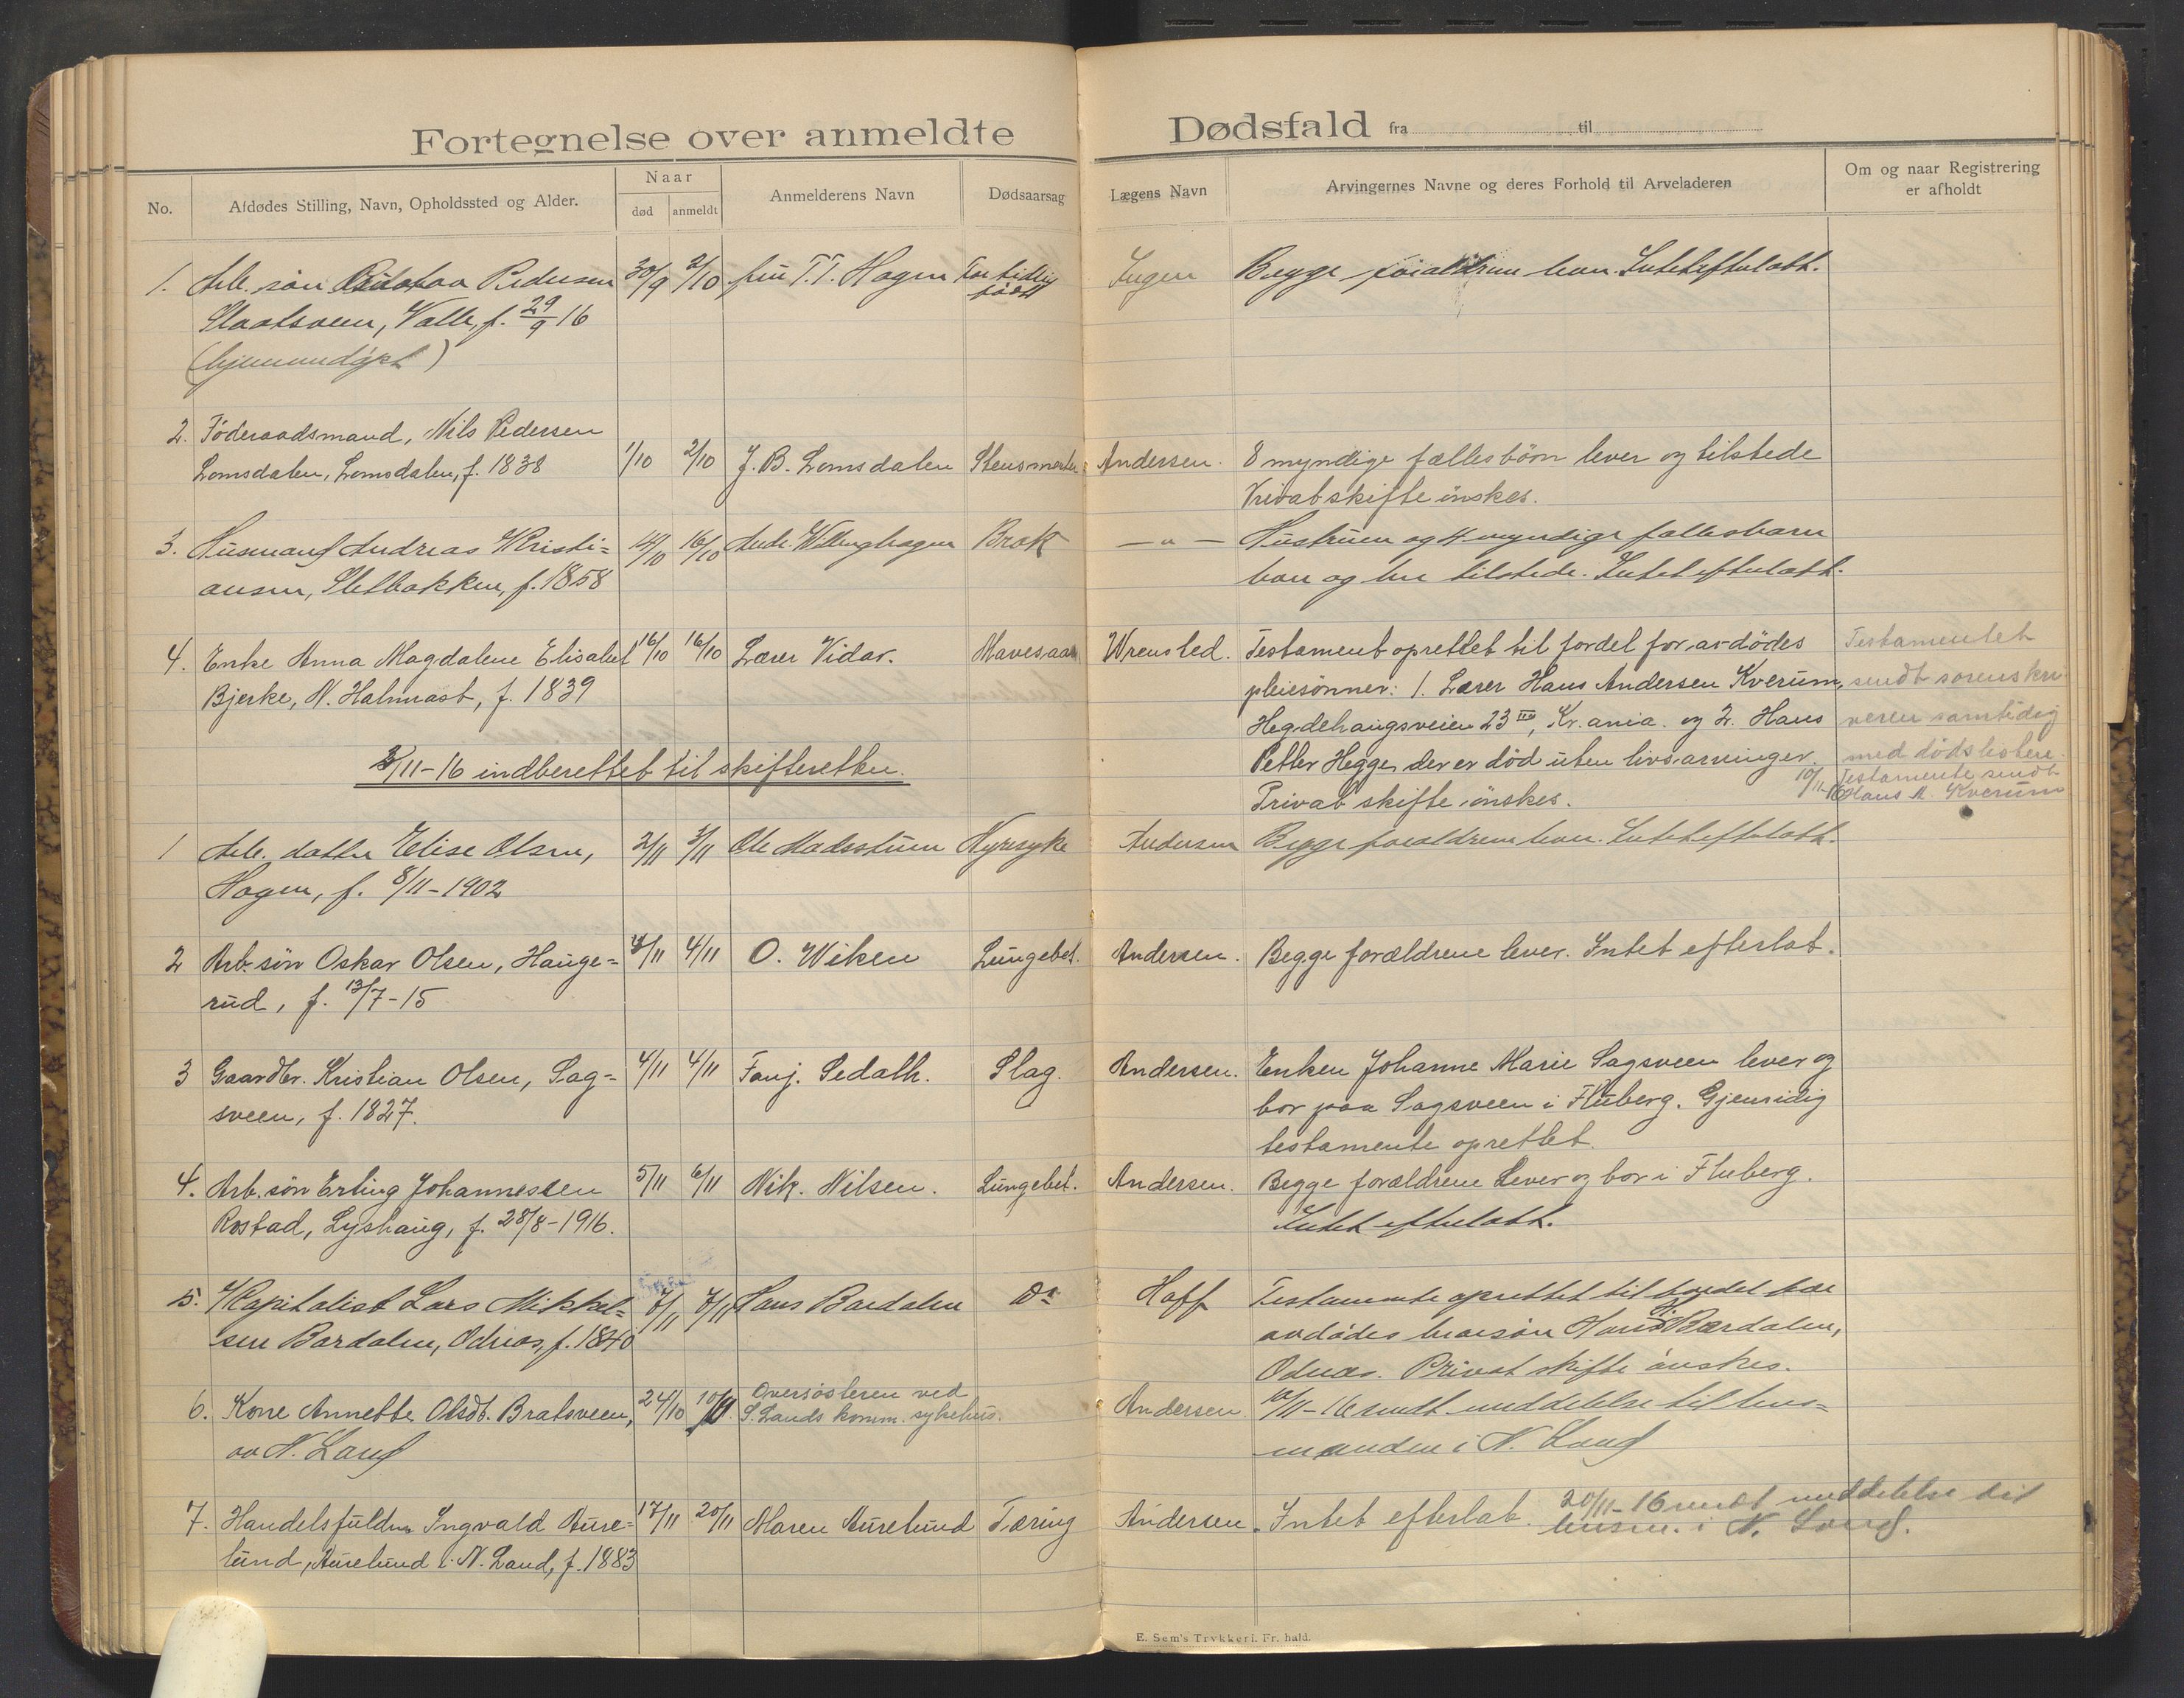 Fortegnelse over anmeldte Dødsfald fra til
No.
Afdødes Stilling, Navn, Opholdssted og Alder.
Naar
død
anmeldt
Anmelderens Navn
Dødsaarsag
Lægens Navn
Arvingernes Navne og deres Forhold til Arveladeren
Om og naar Registrering
er afholdt
1. Arb. søn Pedersen 30/9 2/10 fru T. T. Hagen For tidlig Begge forældrene lever. Intet efterlatt.
født
Slaatsveen, Valle, f. 29/9 16
(hjemmedøpt)
2. Føderaadsmand, Nils Pedersen
Lomsdalen, Lomsdalen, f. 1838 1/10 2/10 J. B. Lomsdalen Andersen. 8 myndige fællesbørn lever og tilstede
Privat skifte ønskes.
3. Husmand Andreas Kristi= 14/10 16/10 Brok — " — Hustruen og 4 myndige fællesbarn
ansen, Sletbakken, f. 1858 lever og er tilstede. Intet efterlatt.
4. Enke Anna Magdalene Elisabet 16/10 16/10 Lærer Vidar. Mavesaar Wrensted. Testament oprettet til fordel for avdødes Testamentet
Bjerke, N. Halmrast, f. 1839 pleiesønner: 1. Lærer Hans Andersen Kverum, sendt sorenskri-
Hegdehaugsveien 23 III, Kr.ania. og 2. Hans veren samtidig
Petter Hegge der er død uten livsarvinger. med dødslisten.
3/11-16 indberettet til skifteretten.
10/11-16 Testamente sendt
Privat skifte ønskes. Hans A. Kverum
1 Arb. datter Elise Olsen, 2/11 3/11 Ole Madsstuen Nyresyke Andersen Begge forældrene lever. Intet efterlatt.
Hagen, f. 8/11-1902
2 Arb. søn Oskar Olsen, Hauge= 3/11 4/11 O. Wiken Lungebet. Andersen. Begge forældrene lever. Intet efterlat.
rud, f. 13/7-15
3 Gaardbr. Kristian Olsen, Sag= 4/11 4/11 Fanj. Sedalh. Slag. Andersen. Enken Johanne Marie Sagsveen lever og
sveen, f. 1827. bor paa Sagsveen i Fluberg. Gjensidig
testamente oprettet.
4. Arb. søn Erling Johannessen 5/11 6/11 Nik. Nilsen. Lungebet. Andersen. Begge forældrene lever og bor i Fluberg.
Rostad, Lyshaug, f. 28/8-1916. Intet efterlatt.
5. Kapitalist Lars Mikkel= 7/11 7/11 Hans Bardalen Do Hoff Testamente oprettet til fordel for
sen Bardalen, Odnes, f. 1840 avdødes brorsøn Hans Bardalen,
Odnes. Privat skifte ønskes.
6. Kone Annette Olsdt. Bratsveen, 24/10 10/11 Oversøsteren ved Andersen. 10/11-16 sendt meddelelse til lens=
S. Lands komm. sykehus.
av N. Land manden i N. Land
7. Handelsfuldm. Ingvald Aure= 17/11 20/11 Maren Aurelund Tæring Andersen. Intet efterlat. 20/11-16 sendt meddelelse til
lensm. i N. Land.
lund, Aurelund i N. Land, f. 1883
E. Sem's Trykkeri. Fr.hald.